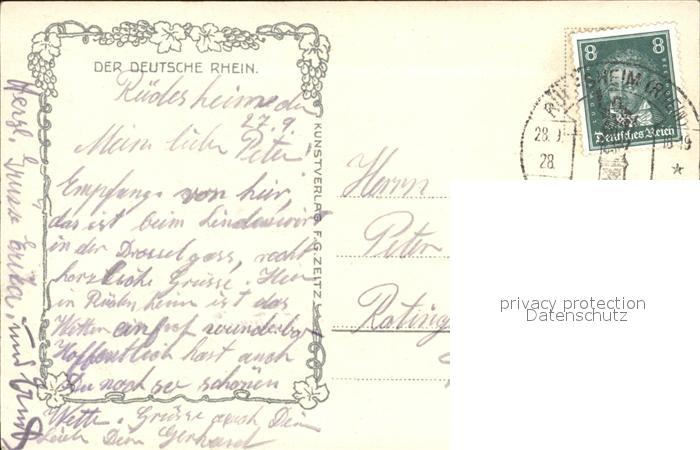 DER DEUTSCHE RHEIN.
Rüdesheim den
27.9.
Mein lieber Peter!
Empfange von hier,
das ist beim Lindenwirt
in der Drosselgass, recht
herzliche Grüsse. Hier
in Rüdesheim ist das
Wetter einfach wunderbar
Hoffentlich hast auch
Du noch so schönen
Wette. Grüsse auch Dein
Dein Gerhard
Herzl. Gruss Erika, und Ernst
KUNSTVERLAG F.G. ZEITZ
Herrn
Peter
Rating
8 8
Deutsches Reich
RÜDESHEIM (RHEIN)
28.
28.
18-19
privacy protection
Datenschutz